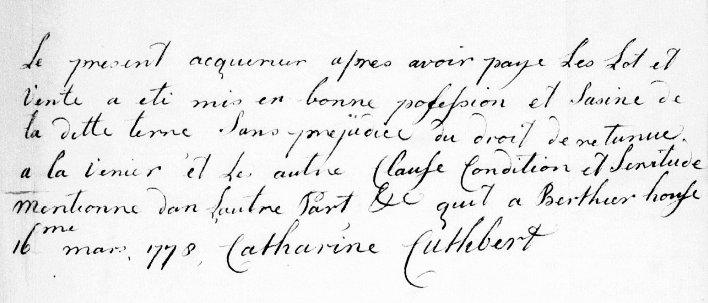 Le present acquereur apres avoir paye Les Lot et
Vente a eté mis en bonne possession et Sasine de
la ditte terre Sans prejudice du droit de retunue
a la venier et Les autre Clause Condition et Servitude
mentionne dan Lautre Part &c quit a Berthier house
16me mars 1778, Catharine Cuthbert